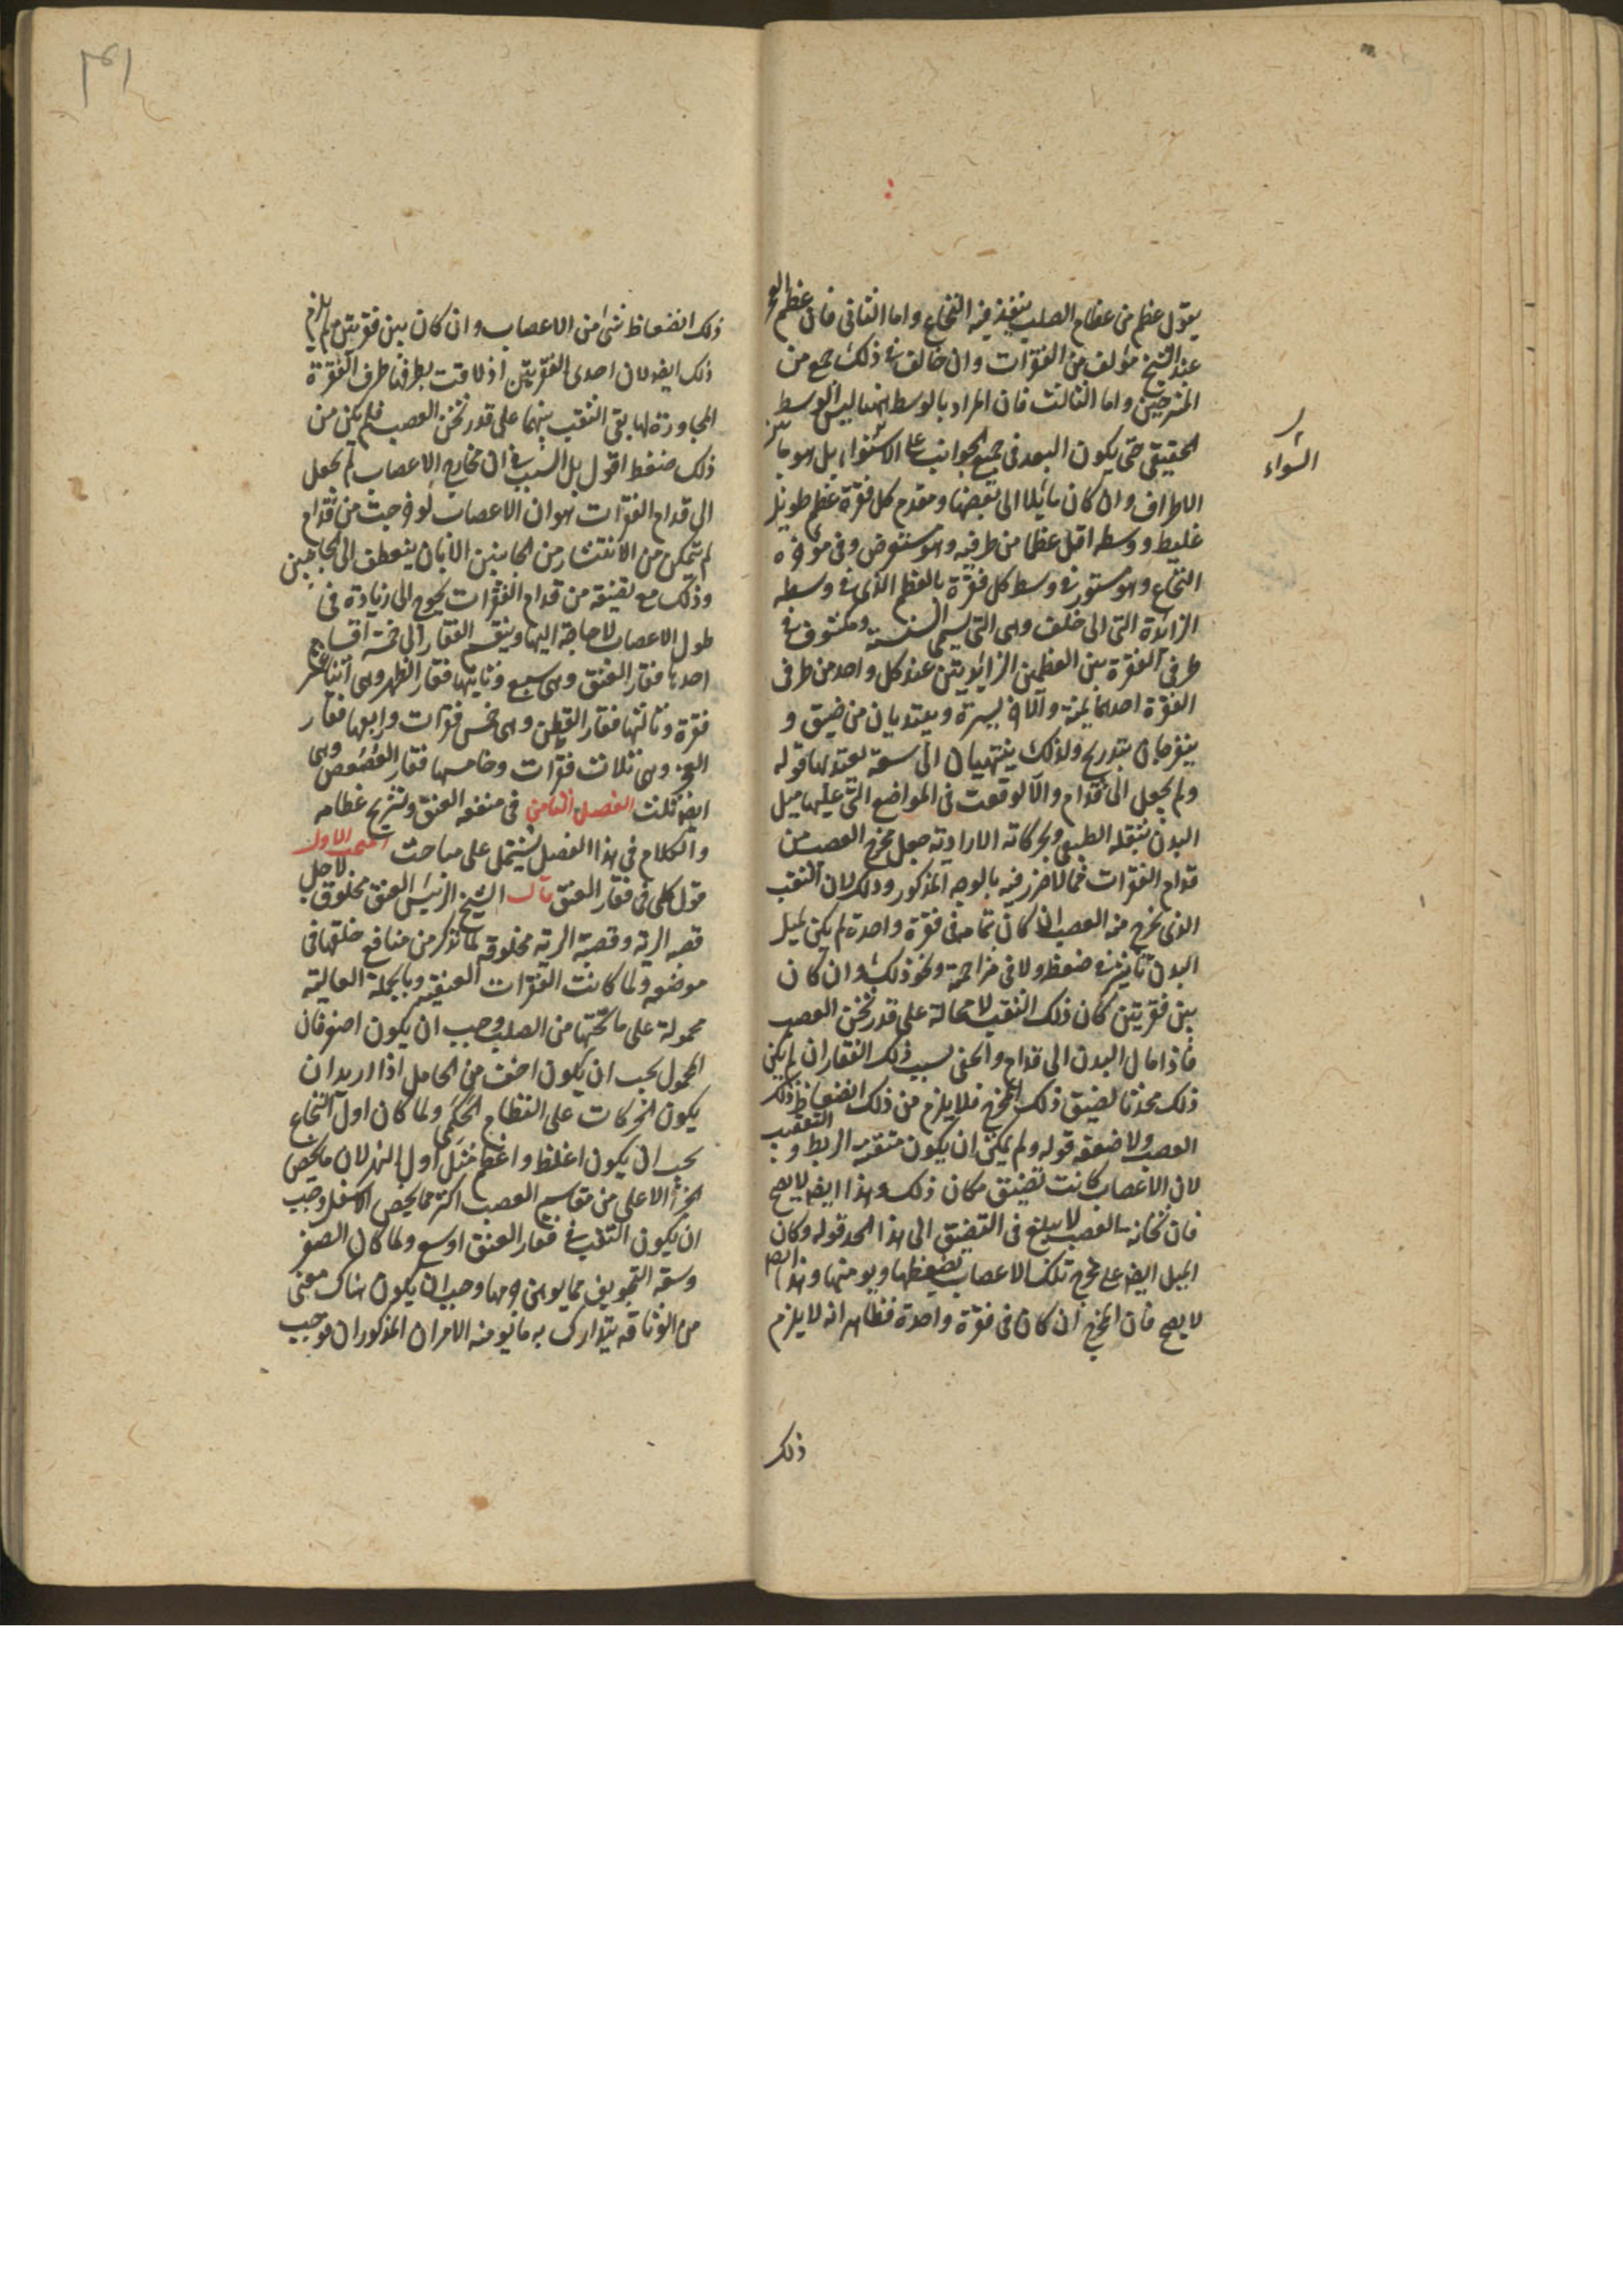 يقول عظم من عظام الصلب ينفذ فيه النخاع واما الثانى فان عظم العجز
عند الشيخ مؤلف من الفقرات وان خالف فى ذلك جمع من
المشرحين واما الثالث فان المراد بالوسط ههنا ليس الوسط
الحقيقى حتى يكون البعد فى جميع الجوانب على الاستواء بل هو ما بين
السواء
الاطراف وان كان مائلا الى بعضها ومقدم كل فقرة عظم طويل
غليظ ووسطه اقل عظما من طرفيه وهو مستعرض وفى مؤخره
النخاع وهو مستور فى وسط كل فقرة بالعظم الذى فى وسطه
الزائدة التى الى خلف وهى التى يسمى السنسنة ومكشوف فى
طرفى الفقرة بين العظمين الزائديتين عند كل واحد من طرفى
الفقرة احدهما يمنة والآخر يسرة ويبتديان من ضيق و
ينفرجان بتدريج ولذلك ينتهيان الى سعة يعتد بها قوله
ولم يجعل الى قدام والا لوقعت فى المواضع التى عليها ميل
البدن بثقله الطبيعى وبحركاته الارادية جعل مخرج العصب من
قدام الفقرات مما لا ضرر فيه بالوجه المذكور وذلك لان الثقب
الذى يخرج منه العصب ان كان بتمامه فى فقرة واحدة لم يكن لميل
البدن تأثير فى ضغط ولا فى مزاحمة ونحو ذلك وان كان
بين فقرتين كان ذلك الثقب لا محالة على قدر ثخن العصب
فاذا مال البدن الى قدام وانحنى بسبب ذلك الفقار ان لم يكن
ذلك محدثا لضيق ذلك المخرج فلا يلزم من ذلك انضغاط ذلك
العصب ولا ضعفه قوله ولم يمكن ان يكون متقنة الربط والتعقيب
لان الاعصاب كانت تضيق مكان ذلك وهذا ايضا لا يصح
فان ثخانة العصب لا يبلغ فى التضيق الى هذا الحد قوله وكان
الميل ايضا على مخرج تلك الاعصاب يضغطها ويوهنها وهذا ايضا
لا يصح فان المخرج ان كان فى فقرة واحدة فظاهر انه لا يلزم
ذلك
ذلك انضغاط شئ من الاعصاب وان كان بين فقرتين لم يلزم
ذلك ايضا لان احدى الفقرتين اذ لاقت بطرفها طرف الفقرة
المجاورة لها بقى الثقب بينهما على قدر ثخن العصب فلم يكن من
ذلك ضغط اقول بل السبب فى ان مخارج الاعصاب لم يجعل
الى قدام الفقرات هو ان الاعصاب لو خرجت من قدام
لم تتمكن من الانتشار من الجانبين الا بان ينعطف الى الجانبين
وذلك مع تضييقه من قدام الفقرات يحوج الى زيادة فى
طول الاعصاب لا حاجة اليها وينقسم الفقار الى خمسة اقسام
احدها فقار العنق وهى سبع وثانيها فقار الظهر وهى اثنا عشر
فقرة وثالثها فقار القطن وهى خمس فقرات ورابعها فقار
العجز وهى ثلاث فقرات وخامسها فقار العصعص وهى
ايضا ثلث الفصل الثامن فى منفعة العنق وتشريح عظامه
والكلام فى هذا الفصل يشتمل على مباحث المبحث الاول
قول كلى فى فقار العنق قال الشيخ الرئيس العنق مخلوق لاجل
قصبة الرية وقصبة الرية مخلوقة لما نذكر من منافع خلقها فى
موضعه ولما كانت الفقرات العنقية وبالجملة العالية
محمولة على ما تحتها من الصلب وجب ان يكون اصغر فان
المحمول يجب ان يكون اخف من الحامل اذا اريد ان
يكون الحركات على النظام الحكمى ولما كان اول النخاع
يجب ان يكون اغلظ واعظم مثل اول النهر لان ما يخص
الجزء الاعلى من مقاسم العصب اكثر مما يخص الاسفل وجب
ان يكون الثقب فى فقار العنق اوسع ولما كان الصغر
وسعة التجويف مما يوهن جرمها وجب ان يكون هناك معنى
من الوثاقة يتدارك به ما يوهنه الامران المذكوران فوجب